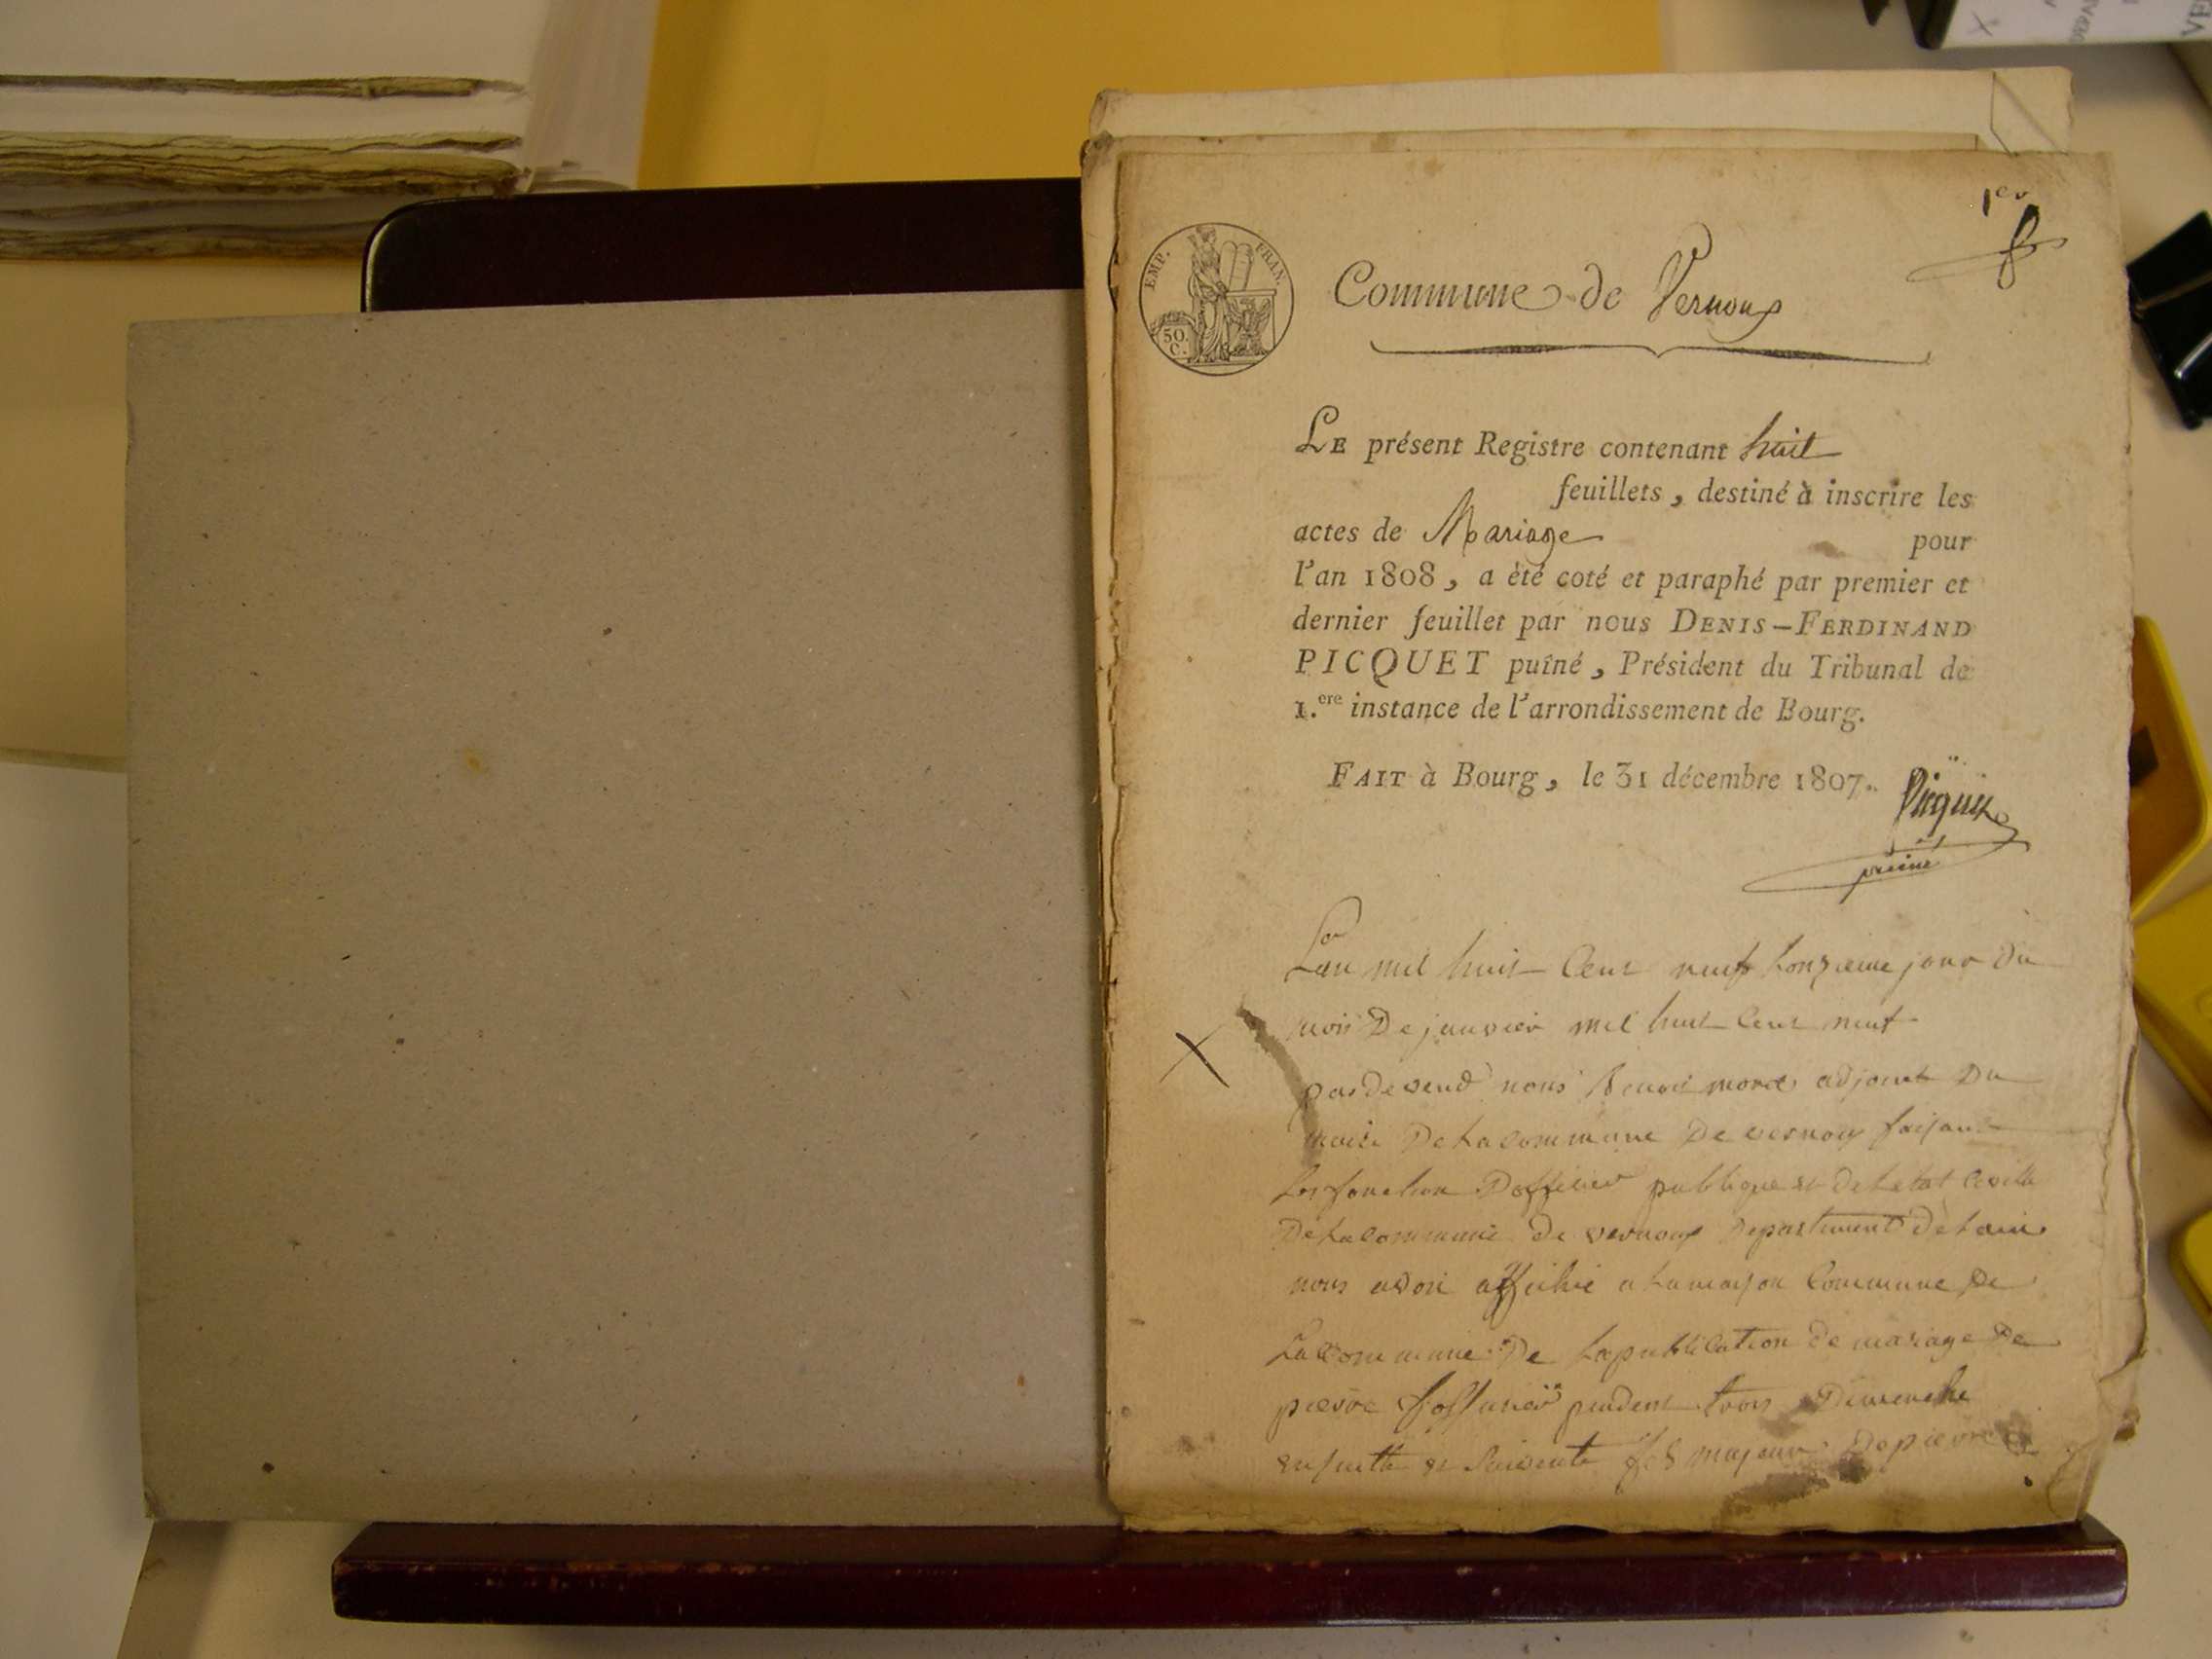 1er
EMP. FRAN.
50.
C.
Commune de Vernoux
LE présent Registre contenant huit
feuillets, destiné à inscrire les
actes de Mariage pour
l'an 1808, a èté coté et paraphé par premier et
dernier feuillet par nous DENIS-FERDINAND
PICQUET puîné, Président du Tribunal de
1.ere instance de l'arrondissement de Bourg.
FAIT à Bourg, le 31 décembre 1807.
Picquet
puiné
Lan mil huit Cent neuf Lonzieme jour Du
mois De janvier mil huit Cent neuf
pardevend nous Benoi morel adjoint Du
maire De La commune De vernoux faisant
Les fonction Dofficier publique et De Letat Civille
De La commune De vernoux Departement De Lain
nous avon affiché a La maison Commune De
La Commune De La publication De mariage De
pierre pendent trois Dimenche
et Suivente fils majeur De pierre